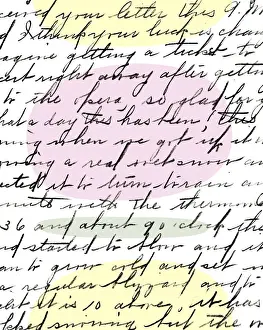 ceived your letter this A.M.
d I think your luck is chan
agine getting a ticket to
cert right away after gettin
to the Opera, so glad for y
hat a day this has been! this
ning when we got up it w
owing a real wet snow and
ected it to turn to rain an
inute with the thermom
36 and about 9 o'clock the
nd started to blow and it
an to grow cold and set in
a regular blizzard and to
ht it is 10 above, it has
pped snowing but the w